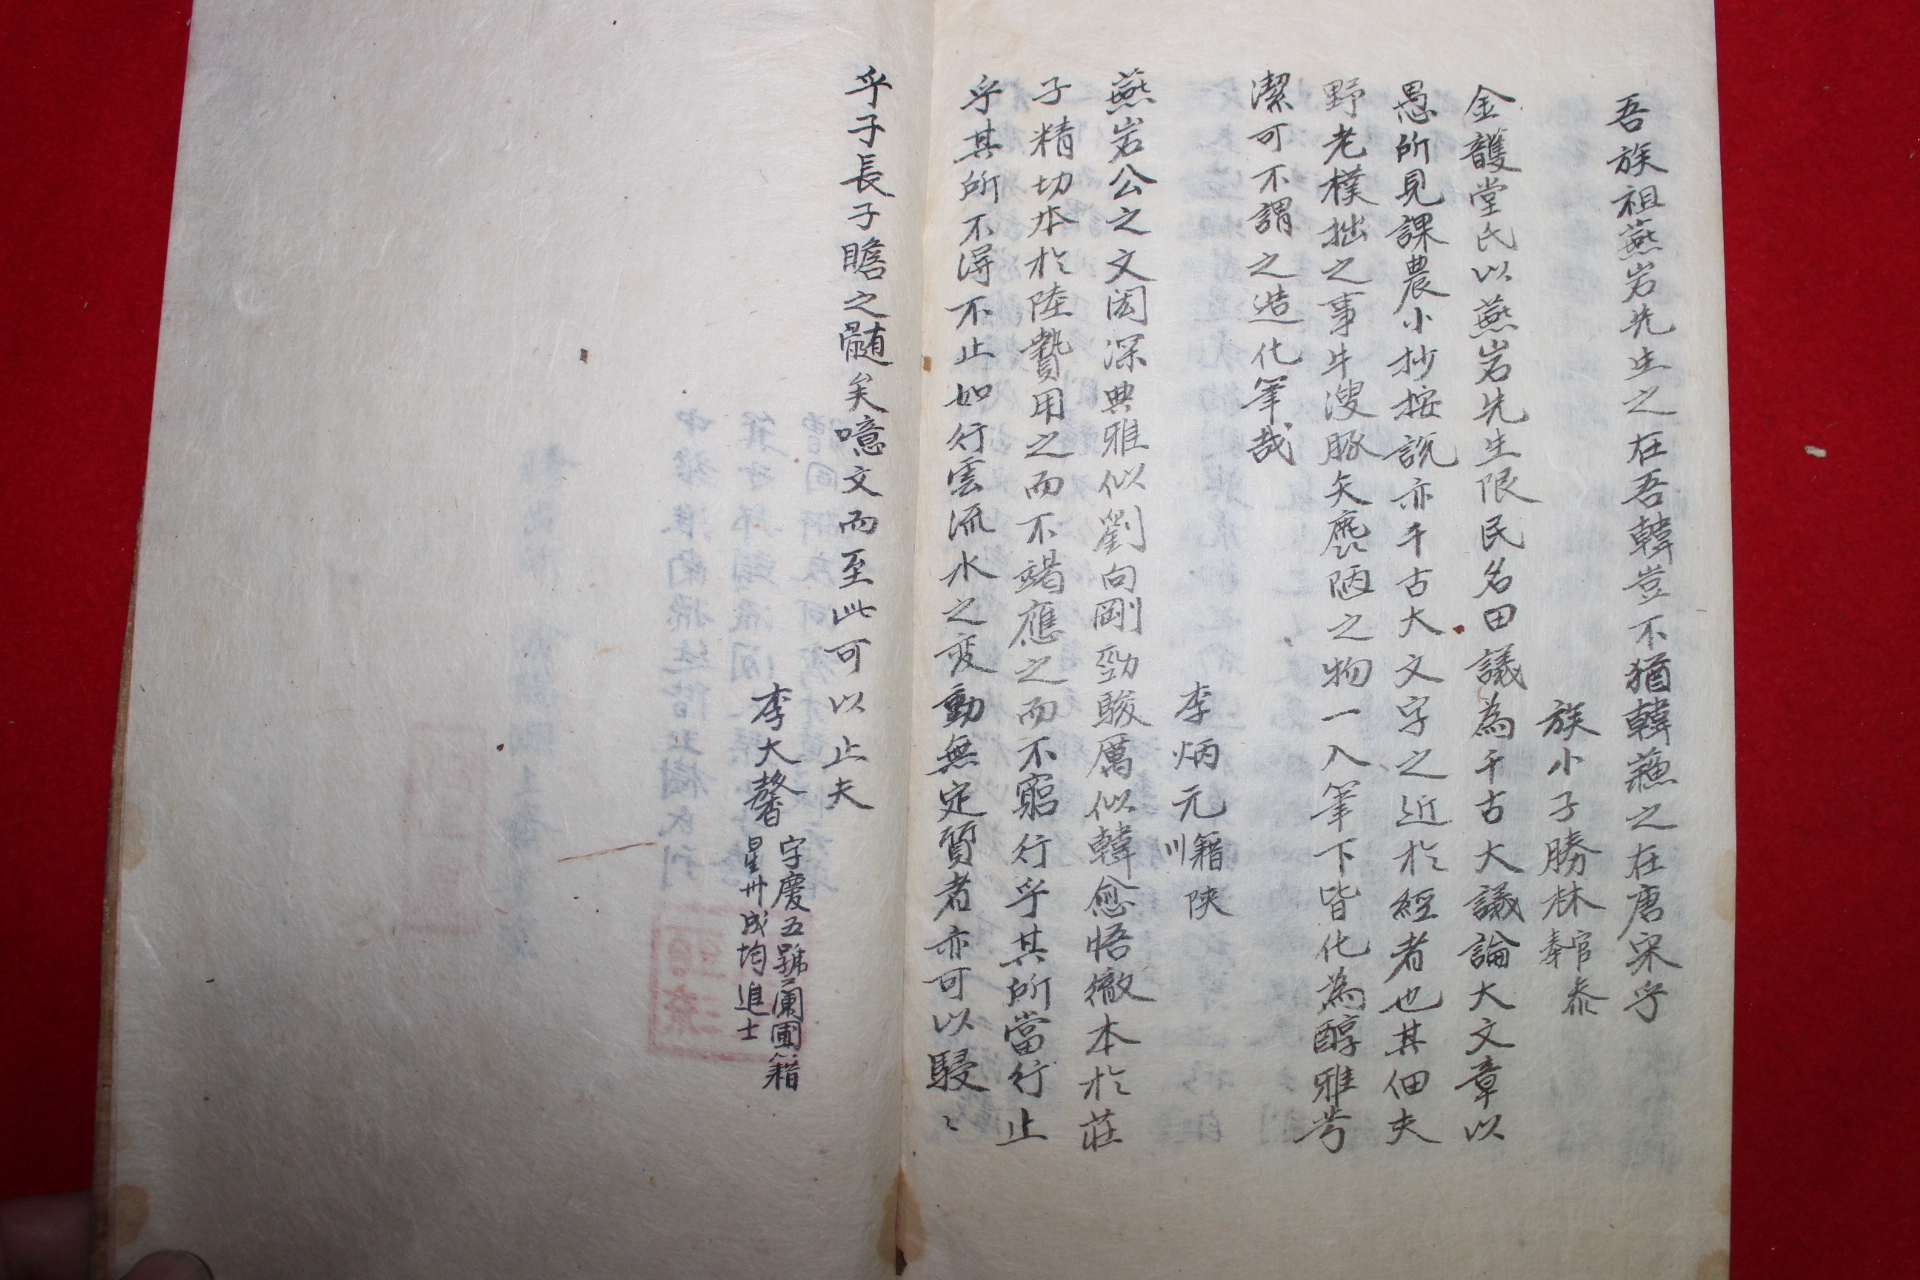 吾族祖燕岩先生之在吾韓豈不猶韓蘓之在唐宋乎
族小子勝林
金頀堂氏以燕岩先生限民名田議為千古大議論大文章以
愚所見課農小抄按說亦千古大文字之近於經者也其佃夫
野老樸拙之事牛溲豚矢麁陋之物一入筆下皆化為醇雅
潔可不謂之造化筆哉
李炳元
籍陜
川
燕岩公之文閎深典雅似劉向剛勁駿厲似韓愈悟徹本於莊
子精切本於陸贄用之而不竭應之而不窮行乎其所當行止
乎其所不得不止如行雲流水之变動無定質者亦可以駸〻
乎子長子瞻之髓矣噫文而至此可以止夫
李大馨
字慶五號蘭圃籍
星州成均進士